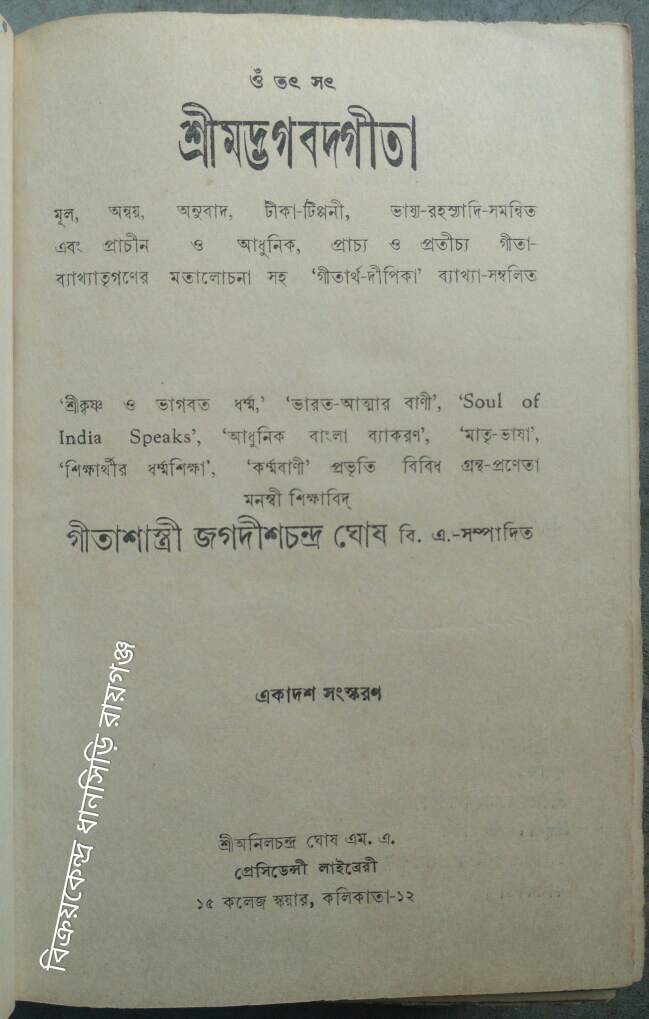 ওঁ তৎ সৎ
শ্রীমদ্ভগবদগীতা
মূল, অন্বয়, অনুবাদ, টীকা-টিপ্পনী, ভাষ্য-রহস্যাদি-সমন্বিত
এবং প্রাচীন ও আধুনিক, প্রাচ্য ও প্রতীচ্য গীতা-
ব্যাখ্যাতৃগণের মতালোচনা সহ ‘গীতার্থ-দীপিকা’ ব্যাখ্যা-সম্বলিত
‘শ্রীকৃষ্ণ ও ভাগবত ধর্ম্ম,’ ‘ভারত-আত্মার বাণী’, ‘Soul of
India Speaks’, ‘আধুনিক বাংলা ব্যাকরণ’, ‘মাতৃ-ভাষা’,
‘শিক্ষার্থীর ধর্ম্মশিক্ষা’, ‘কর্ম্মবাণী’ প্রভৃতি বিবিধ গ্রন্থ-প্রণেতা
মনস্বী শিক্ষাবিদ্
গীতাশাস্ত্রী জগদীশচন্দ্র ঘোষ বি. এ.-সম্পাদিত
একাদশ সংস্করণ
শ্রীঅনিলচন্দ্র ঘোষ এম. এ.
প্রেসিডেন্সী লাইব্রেরী
১৫ কলেজ স্কয়ার, কলিকাতা-১২
বিক্রয়কেন্দ্র ধানসিড়ি রায়গঞ্জ